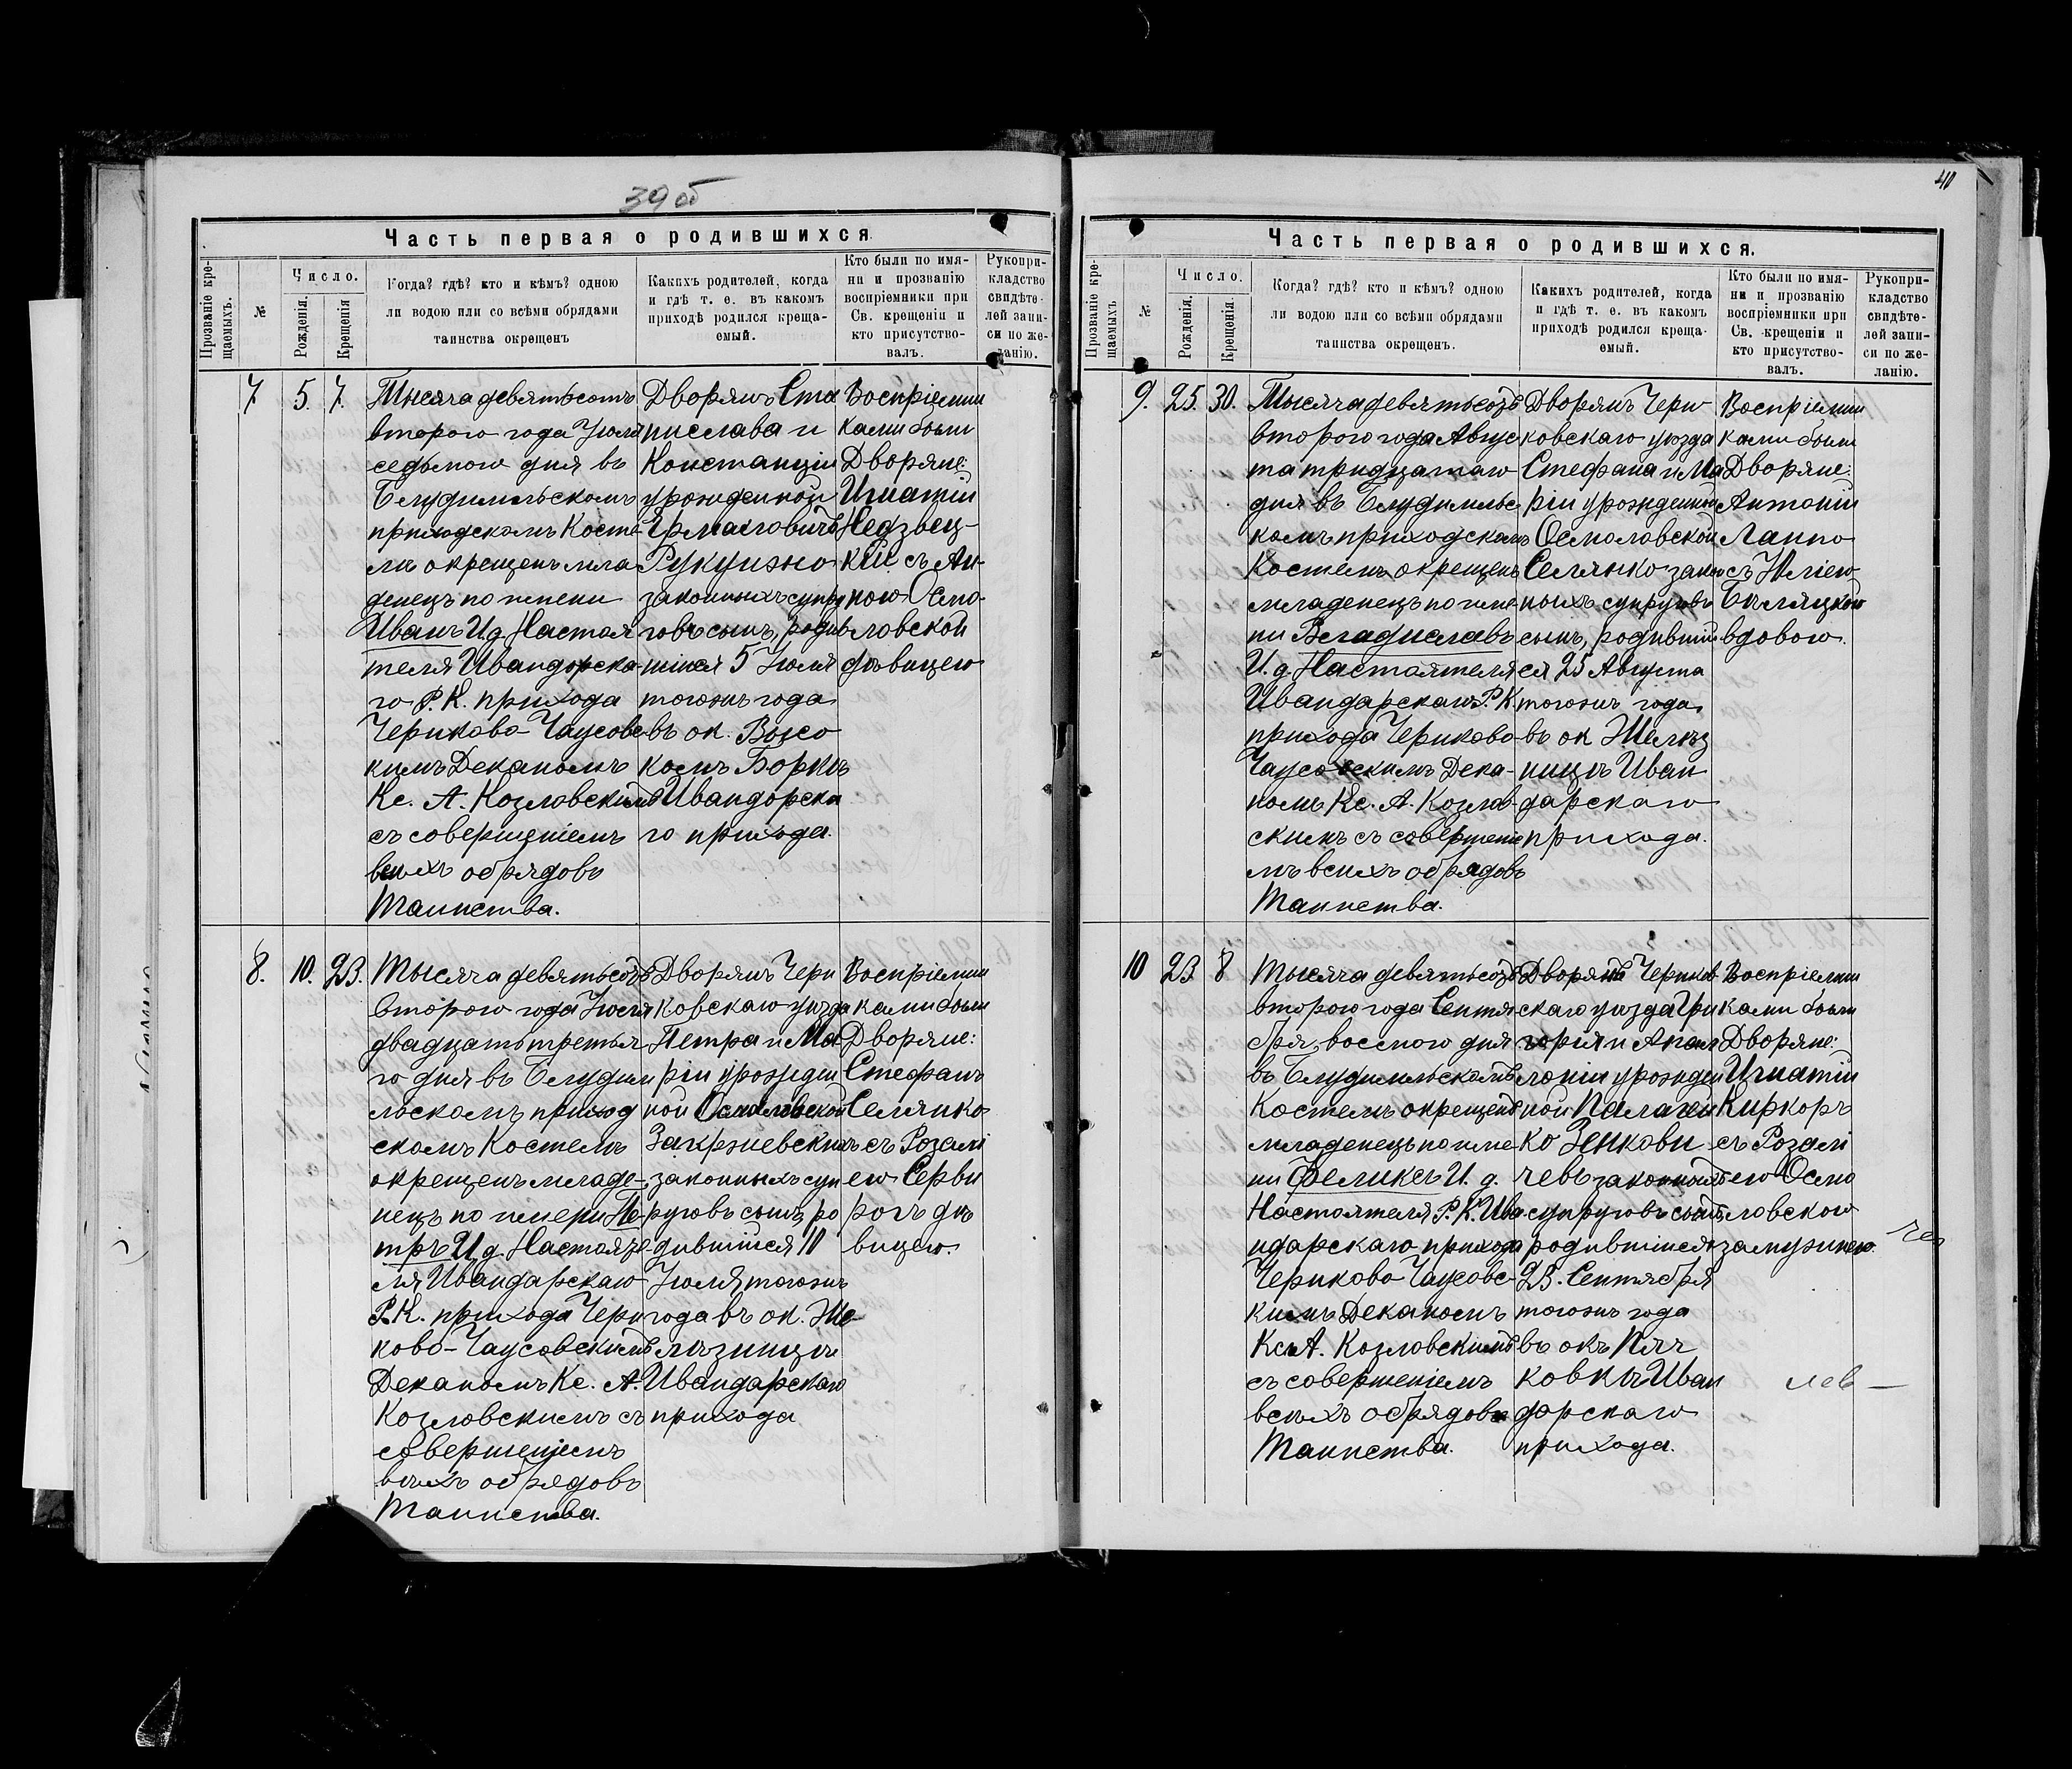 39 об
Часть первая о родившихся.
Прозваніе кре-
щаемыхъ.
№
Число.
Рожденія.
Крещенія
Когда? гдѣ? кто и кѣмъ? одною
ли водою или со всѣми обрядами
таинства окрещенъ
Какихъ родителей, когда
и гдѣ т. е. въ какомъ
приходѣ родился креща-
емый.
Кто были по имя-
ни и прозванію
воспріемники при
Св. крещеніи и
кто присутство-
валъ.
Рукопри-
кладство
свидѣте-
лей запи-
си по же-
ланію.
7
5.
7.
Тысяча девятьсотъ
второго года Іюля
седьмого дня въ
Бѣлудимльскомъ
приходскомъ Косте-
лѣ окрещенъ мла
денецъ по имени
Иванъ И.д. Настоя
теля Ивандорска-
го Р. К. прихода
Чериково-Чаусовс-
кимъ Деканомъ
Кс. А. Козловскимъ
съ совершеніемъ
всѣхъ обрядовъ
Таинства.
Дворянъ Ста
нислава и
Констанціи
урожденной
Ермаковичъ
Рукуйжо
законныхъ супру
говъ сынъ, родив
шійся 5 Іюля
тогожъ года
въ ок. Высо
комъ Боркѣ
Ивандорска
го прихода.
Воспріемни
ками были
Дворяне:
Игнатій
Недзвец-
кій съ Ан-
ною Осмо-
ловской
дѣвицею
8.
10.
23.
Тысяча девятьсотъ
второго года Іюля
двадцать третья
го дня въ Бѣлудим
льскомъ приход
скомъ Костелѣ
окрещенъ младе-
нецъ по имени Пе
тръ И.д. Настояте-
ля Ивандарскаго
Р.К. прихода Чери
ково-Чаусовскимъ
Деканомъ Кс. А.
Козловскимъ съ
совершеніемъ
всѣхъ обрядовъ
Таинства.
Дворянъ Чери
ковскаго уѣзда
Петра и Ма
ріи урожден
ной Осмоловской
Закржевскихъ
законныхъ суп
руговъ сынъ ро
дившійся 10
Іюля тогожъ
года въ ок. Же-
лѣзницѣ
Ивандарскаго
прихода
Воспріемни
ками были
Дворяне:
Стефанъ
Селянко
съ Розалі
ею Серви
рогъ дѣ
вицею.
40
Часть первая о родившихся.
Прозваніе кре-
щаемыхъ
№
Число.
Рожденія.
Крещенія.
Когда? гдѣ? кто и кѣмъ? одною
ли водою или со всѣми обрядами
таинства окрещенъ.
Какихъ родителей, когда
и гдѣ т. е. въ какомъ
приходѣ родился креща-
емый.
Кто были по имя-
ни и прозванію
воспріемники при
Св. крещеніи и
кто присутство-
валъ.
Рукопри-
кладство
свидѣте-
лей запи-
си по же-
ланію.
9.
25.
30.
Тысяча девятьсотъ
второго года Авгус
та тридцатаго
дня въ Бѣлудимльс
комъ приходскомъ
Костелѣ окрещенъ
младенецъ по име
ни Владиславъ
И.д. Настоятеля
Ивандарскаго Р.К.
прихода Чериково-
Чаусовскимъ Дека-
номъ Кс. А. Козлов
скимъ съ совершеніе
мъ всѣхъ обрядовъ
Таинства.
Дворянъ Чери
ковскаго уѣзда
Стефана и Ма
ріи урожденной
Осмоловской
Селянко закон
ныхъ супруговъ
сынъ, родившій
ся 25 Августа
тогожъ года,
въ ок Желѣз
ницѣ Иван
дарскаго
прихода.
Воспріемни
ками были
Дворяне:
Антоній
Лаппо
съ Юліею
Бѣляцкою
вдовою.
10
23
8
Тысяча девятьсотъ
второго года Сентя
бря, восьмого дня
въ Бѣлудимльскомъ
Костелѣ окрещенъ
младенецъ по име-
ни Феликсъ И. д.
Настоятеля Р.К. Ива
ндарскаго прихода
Чериково Чаусовс-
кимъ Деканомъ
Кс. А. Козловскимъ
съ совершеніемъ
всѣхъ обрядовъ
Таинства.
Дворянъ Чериков
скаго уѣзда Гри
горія и Апол
лоніи урожден
ной Палачей
ко Зенкови
чевъ законныхъ
супруговъ сынъ
родившійся
23. Сентября
тогожъ года
въ окъ Пяч
ковкѣ Иван
дарскаго
прихода.
Воспріемни
ками были
Дворяне:
Игнатій
Киркоръ
съ Розалі
ею Осмо
ловскою
замужнею.